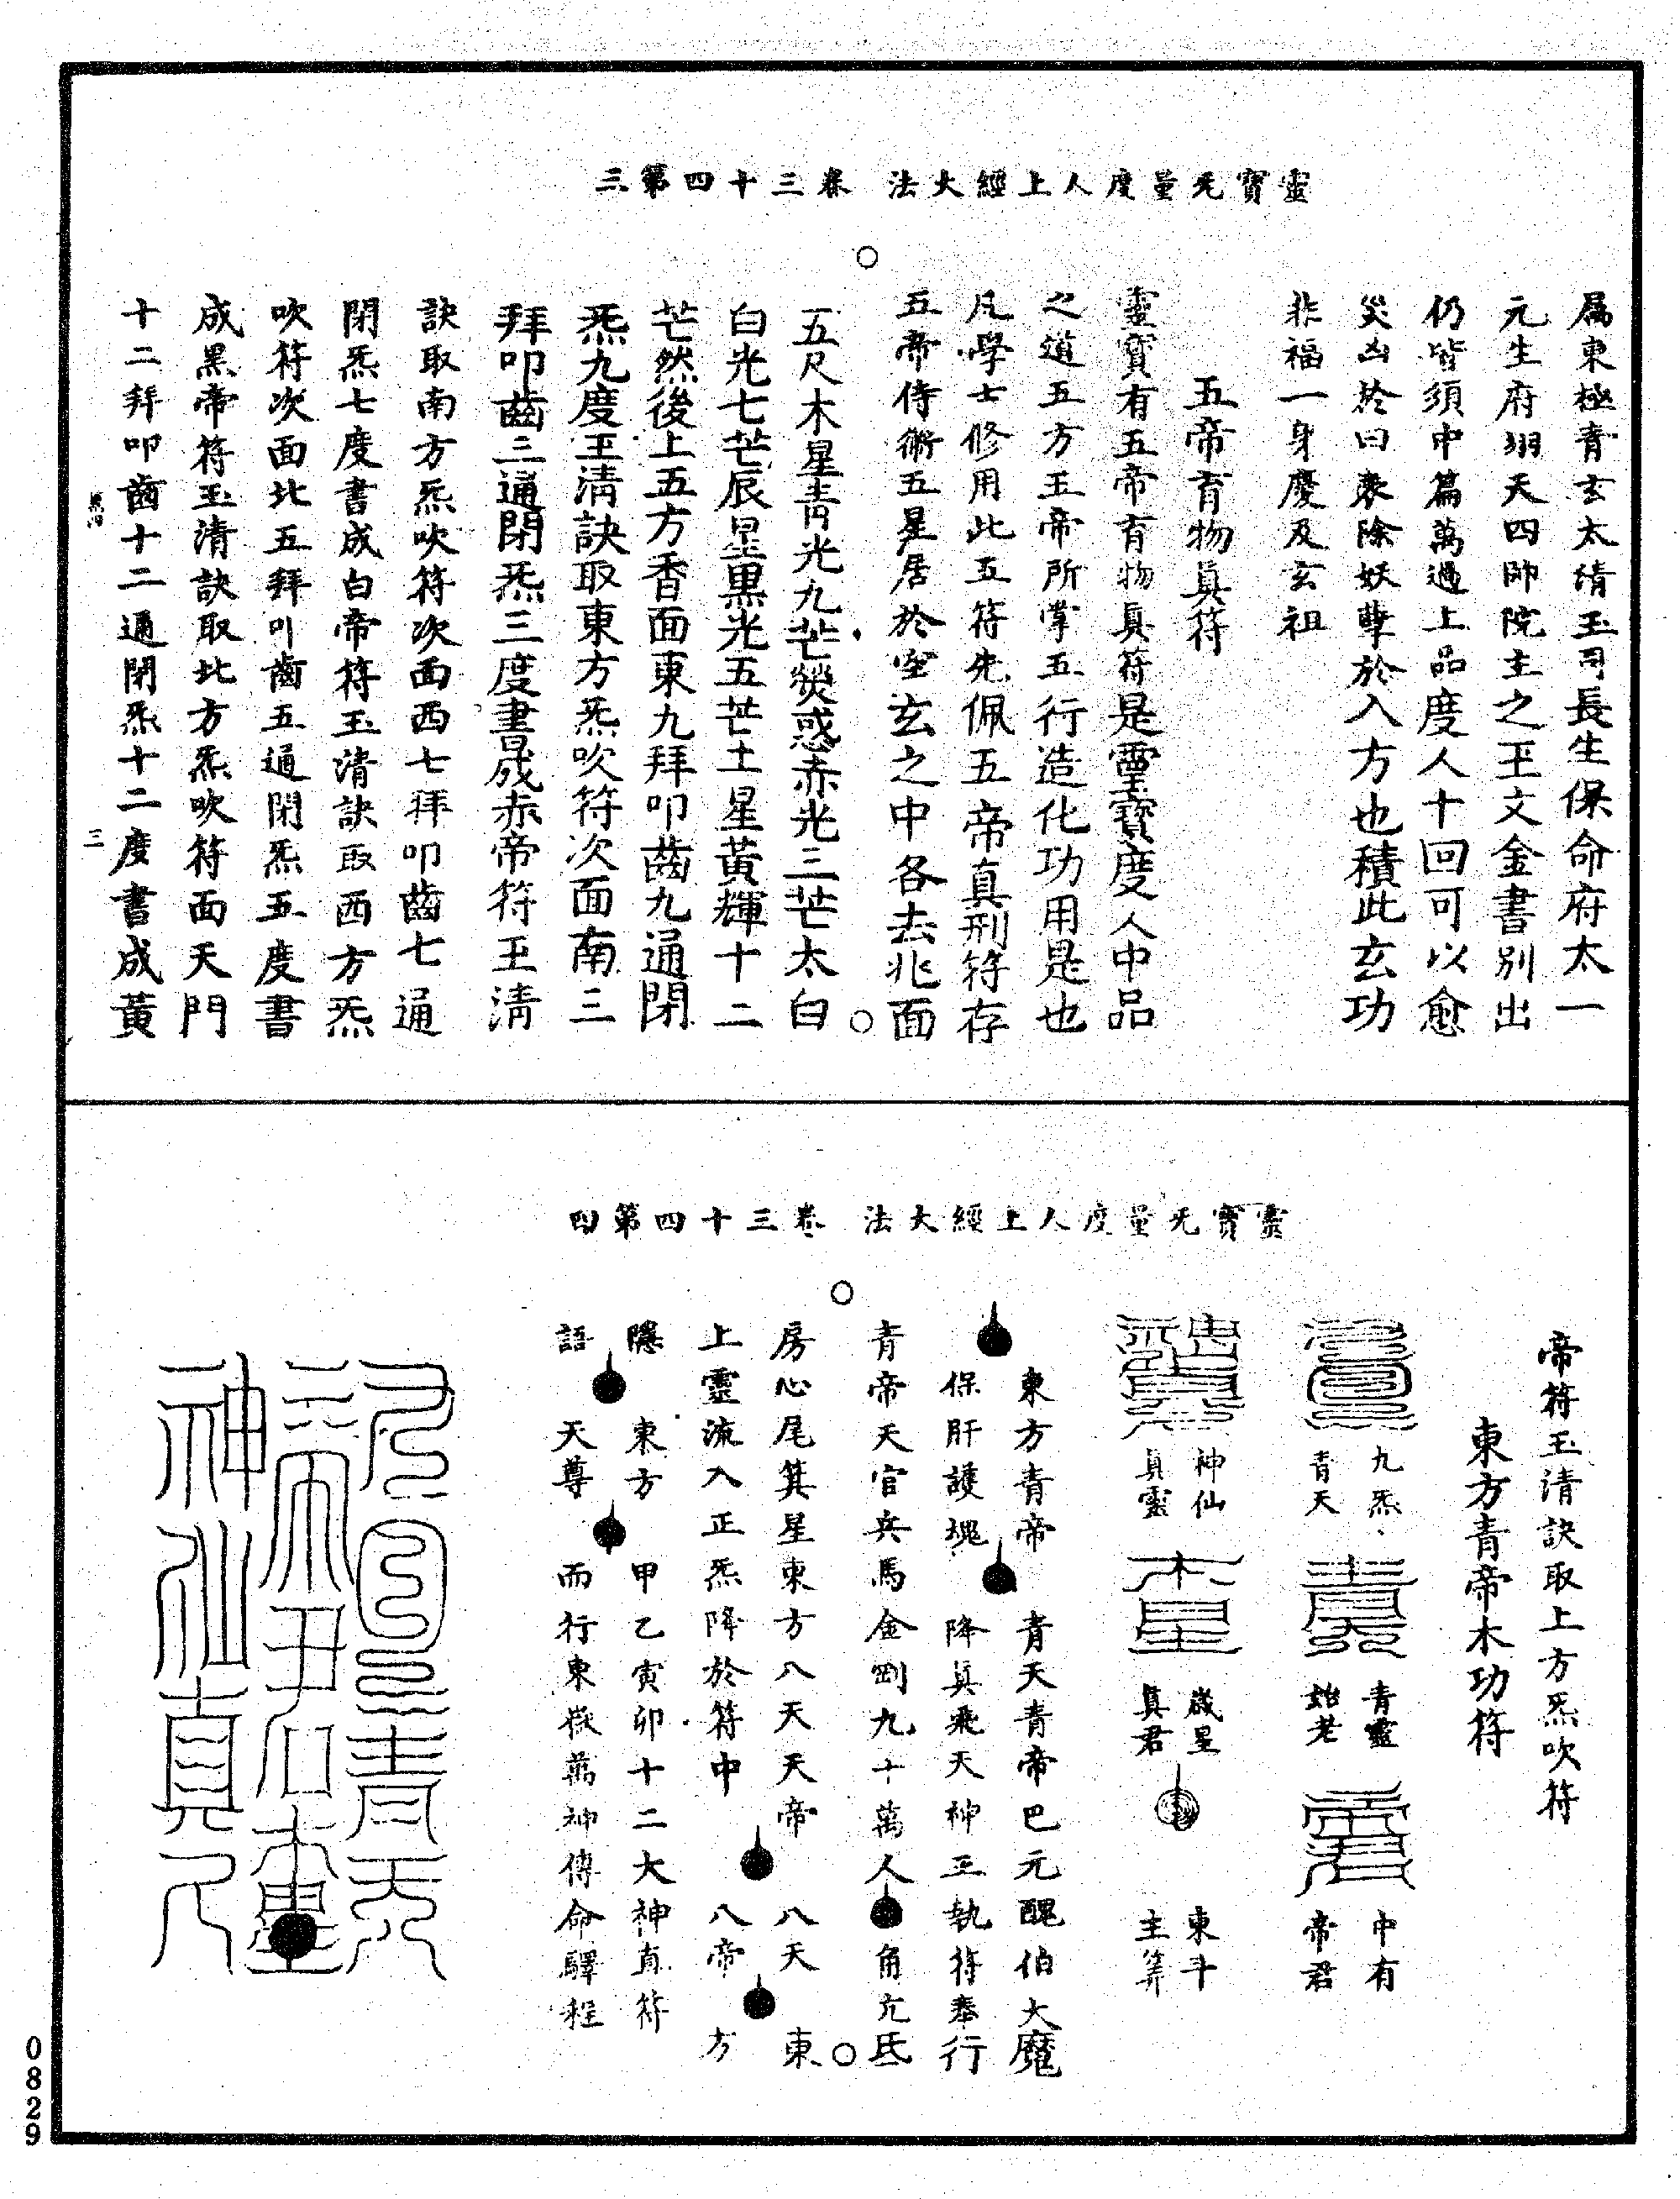 靈寶无量度人上經大法　卷三十四第三
屬東極青玄太清玉司長生保命府太一
元生府翊天四帥院主之玉文金書別出
仍皆須中篇萬過上品度人十回可以愈
災凶於曰衆除妖孽於入方也積此玄功
非福一身慶及玄祖
五帝育物眞符
靈寶有五帝育物眞符是靈寶度人中品
之道五方五帝所掌五行造化功用是也
凡學士修用此五符先佩五帝真形符存
五帝侍衛五星居於空玄之中各去兆面
五尺木星青光九芒熒惑赤光三芒太白
白光七芒辰星黑光五芒土星黃輝十二
芒然後上五方香面東九拜叩齒九通閉
炁九度玉清訣取東方炁吹符次面南三
拜叩齒三通閉炁三度書成赤帝符玉清
訣取南方炁吹符次面西七拜叩齒七通
閉炁七度書成白帝符玉清訣取西方炁
吹符次面北五拜叩齒五通閉炁五度書
成黑帝符玉清訣取北方炁吹符面天門
十二拜叩齒十二通閉炁十二度書成黃
三
靈寶无量度人上經大法　卷三十四第四
帝符玉清訣取上方炁吹符
東方青帝木功符
九炁青天　青靈始老　中有帝君
神仙眞靈　歲星眞君　東斗主筭
東方青帝　青天青帝巴元醜伯大魔
保肝護魂　降眞飛天神王執符奉行
青帝天官兵馬金剛九十萬人　角亢氐
房心尾箕星東方八天天帝　八天　東
上靈流入正炁降於符中　八帝　方
隱　東方　甲乙寅卯十二大神直符
語　天尊　而行東嶽萬神傳命驛程
0829